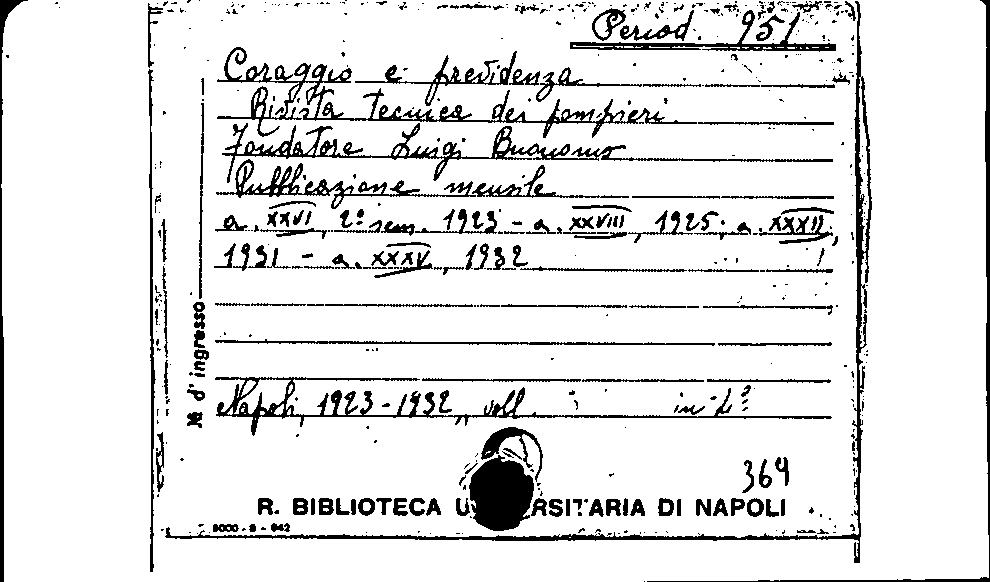 Period. 951
Coraggio e previdenza
Rivista tecnica dei pompieri.
Fondatore Luigi Buonomo
Pubblicazione mensile
a. XXVI, 2º sem. 1923 - a. XXVIII, 1925; a. XXXII,
1931 - a. XXXV, 1932.
Nº d' ingresso
Napoli, 1923-1932,, voll. in-4º
369
R. BIBLIOTECA U RSITARIA DI NAPOLI
5000 - 8 - 942